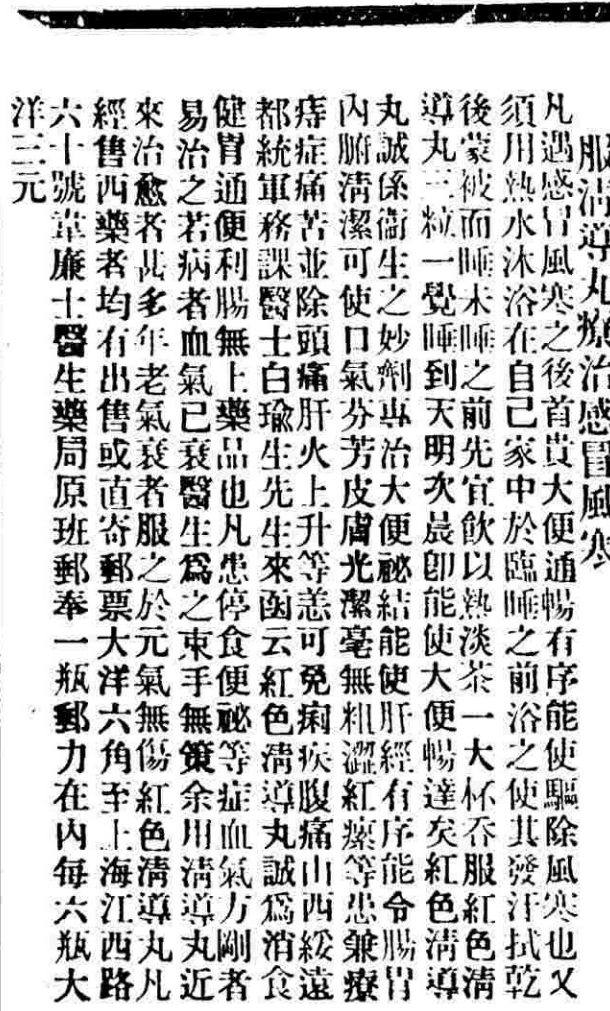 服清導丸療治感冒風寒
凡遇感冒風寒之後首貴大便通暢有序能使驅除風寒也又
須用熱水沐浴在自己家中於臨睡之前浴之使其發汗拭乾
後蒙被而睡未睡之前先宜飲以熱淡茶一大杯吞服紅色清
導丸三粒一覺睡到天明次晨卽能使大便暢達矣紅色清導
丸誠係衞生之妙劑專治大便祕結能使肝經有序能令腸胃
內腑淸潔可使口氣芬芳皮膚光潔毫無粗澀紅瘰等患兼療
痔症痛苦並除頭痛肝火上升等恙可免痢疾腹痛山西綏遠
都統軍務課醫士白瑜生先生來函云紅色淸導丸誠爲消食
健胃通便利腸無上藥品也凡患停食便祕等症血氣方剛者
易治之若病者血氣已衰醫生爲之束手無策余用淸導丸近
來治愈者甚多年老氣衰者服之於元氣無傷紅色淸導丸凡
經售西藥者均有出售或直寄郵票大洋六角至上海江西路
六十號韋廉士醫生藥局原班郵奉一瓶郵力在內每六瓶大
洋三元